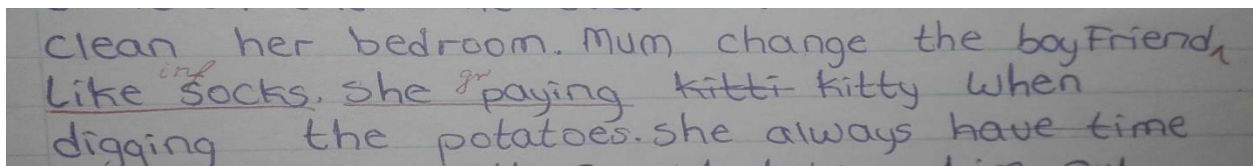 clean her bedroom. Mum change the boyFriend
Like inf socks. She gr paying kitti kitty when
digging the potatoes. She always have time